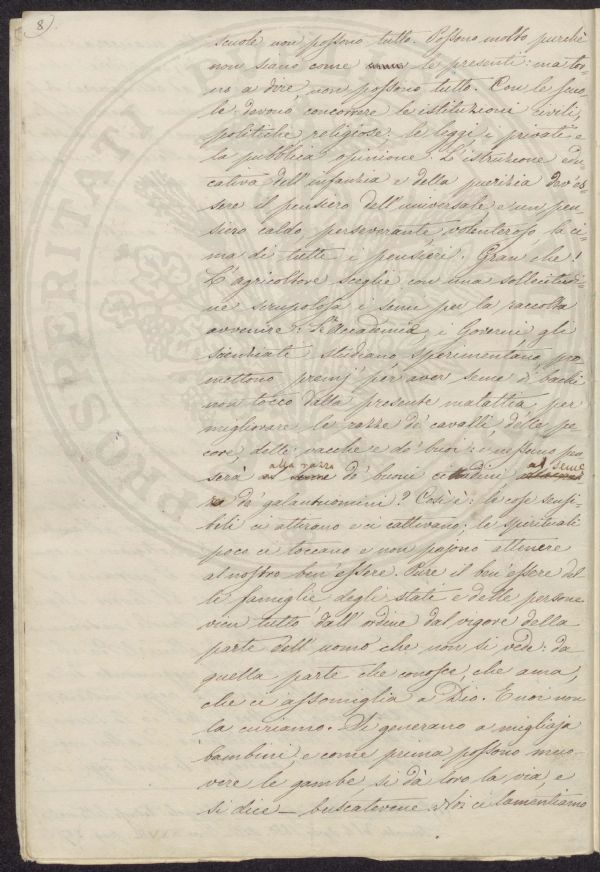 8
scuole non possono tutto. Possono molto purchè
non siano come le presenti: ma tor-
no a dire, non possono tutto. Con le scuo-
le devono concorrere le istituzioni civili,
politiche religiose: le leggi i privati e
la pubblica opinione. L'istruzione edu-
cativa dell'infanzia e della puerizia dev'es-
sere il pensiero dell'universale e un pen-
siero caldo perseverante volenteroso la ci-
ma di tutti i pensieri. Gran che!
L'agricoltore sceglie con una sollecitudi-
ne scrupolosa i semi per la raccolta
avvenire: l'Accademia, i Governi gli
scienziati studiano sperimentano pro-
mettono premj per aver seme di bachi
non tocco dalla presente malattia per
migliorare le razze de' cavalli delle pe-
core delle vacche e de' buoi: e nessuno pen-
serà alla razza de' buoni cittadini al seme
de' galantuomini? Così è: le cose sensi-
bili ci attirano e ci cattivano; le spirituali
poco ci toccano e non pajono attenere
al nostro ben'essere. Pure il ben'essere del-
le famiglie degli stati e delle persone
vien tutto dall'ordine dal vigore della
parte dell'uomo che non si vede: da
quella parte che conosce, che ama,
che ci assomiglia a Dio. E noi non
la curiamo. Si generano a migliaja
bambini, e come prima possono muo-
vere le gambe, si dà loro la via, e
si dice — buscatevene. Noi ci lamentiamo
PROSPERITATI